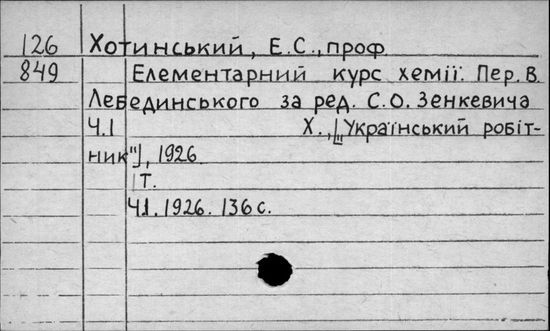 126 Хотинський, Е.С., проф
849 Елементарний курс хемії. Пер. В.
Лебединського за ред. С.О. Зенкевича
Ч.1 Х., ["Український робіт-
ник"], 1926
1т.
Ч1. 1926. 136 с.